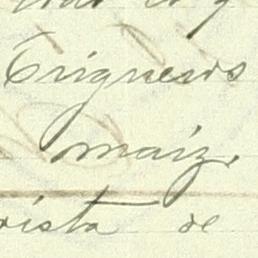 Trigueros
maiz.
vista de